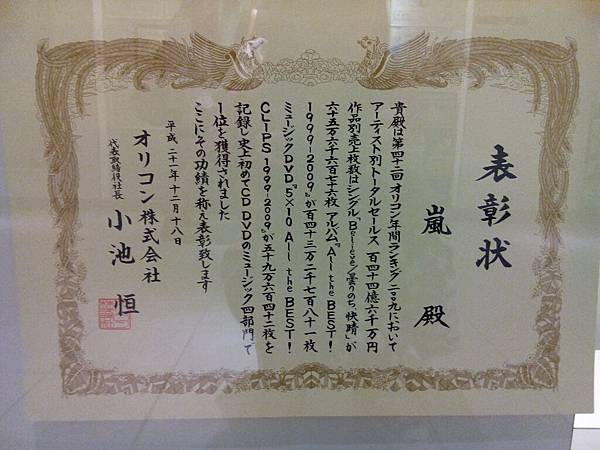 表彰状
嵐 殿
貴殿は第四十二回 オリコン年間ランキング二〇〇九において
アーティスト別トータルセールス 百四十四億六千万円
作品別売上枚数はシングル『Believe/曇りのち、快晴』が
六十五万六千六百七十六枚 アルバム『All the BEST!
1999-2009』が百四十三万二千七百八十一枚
ミュージックDVD『5×10 All the BEST!
CLIPS 1999-2009』が五十九万六百四十二枚を
記録し史上初めてCD DVDのミュージック四部門で
1位を獲得されました
ここにその功績を称え表彰致します
平成二十一年十二月十八日
オリコン株式会社
代表取締役社長 小池 恒